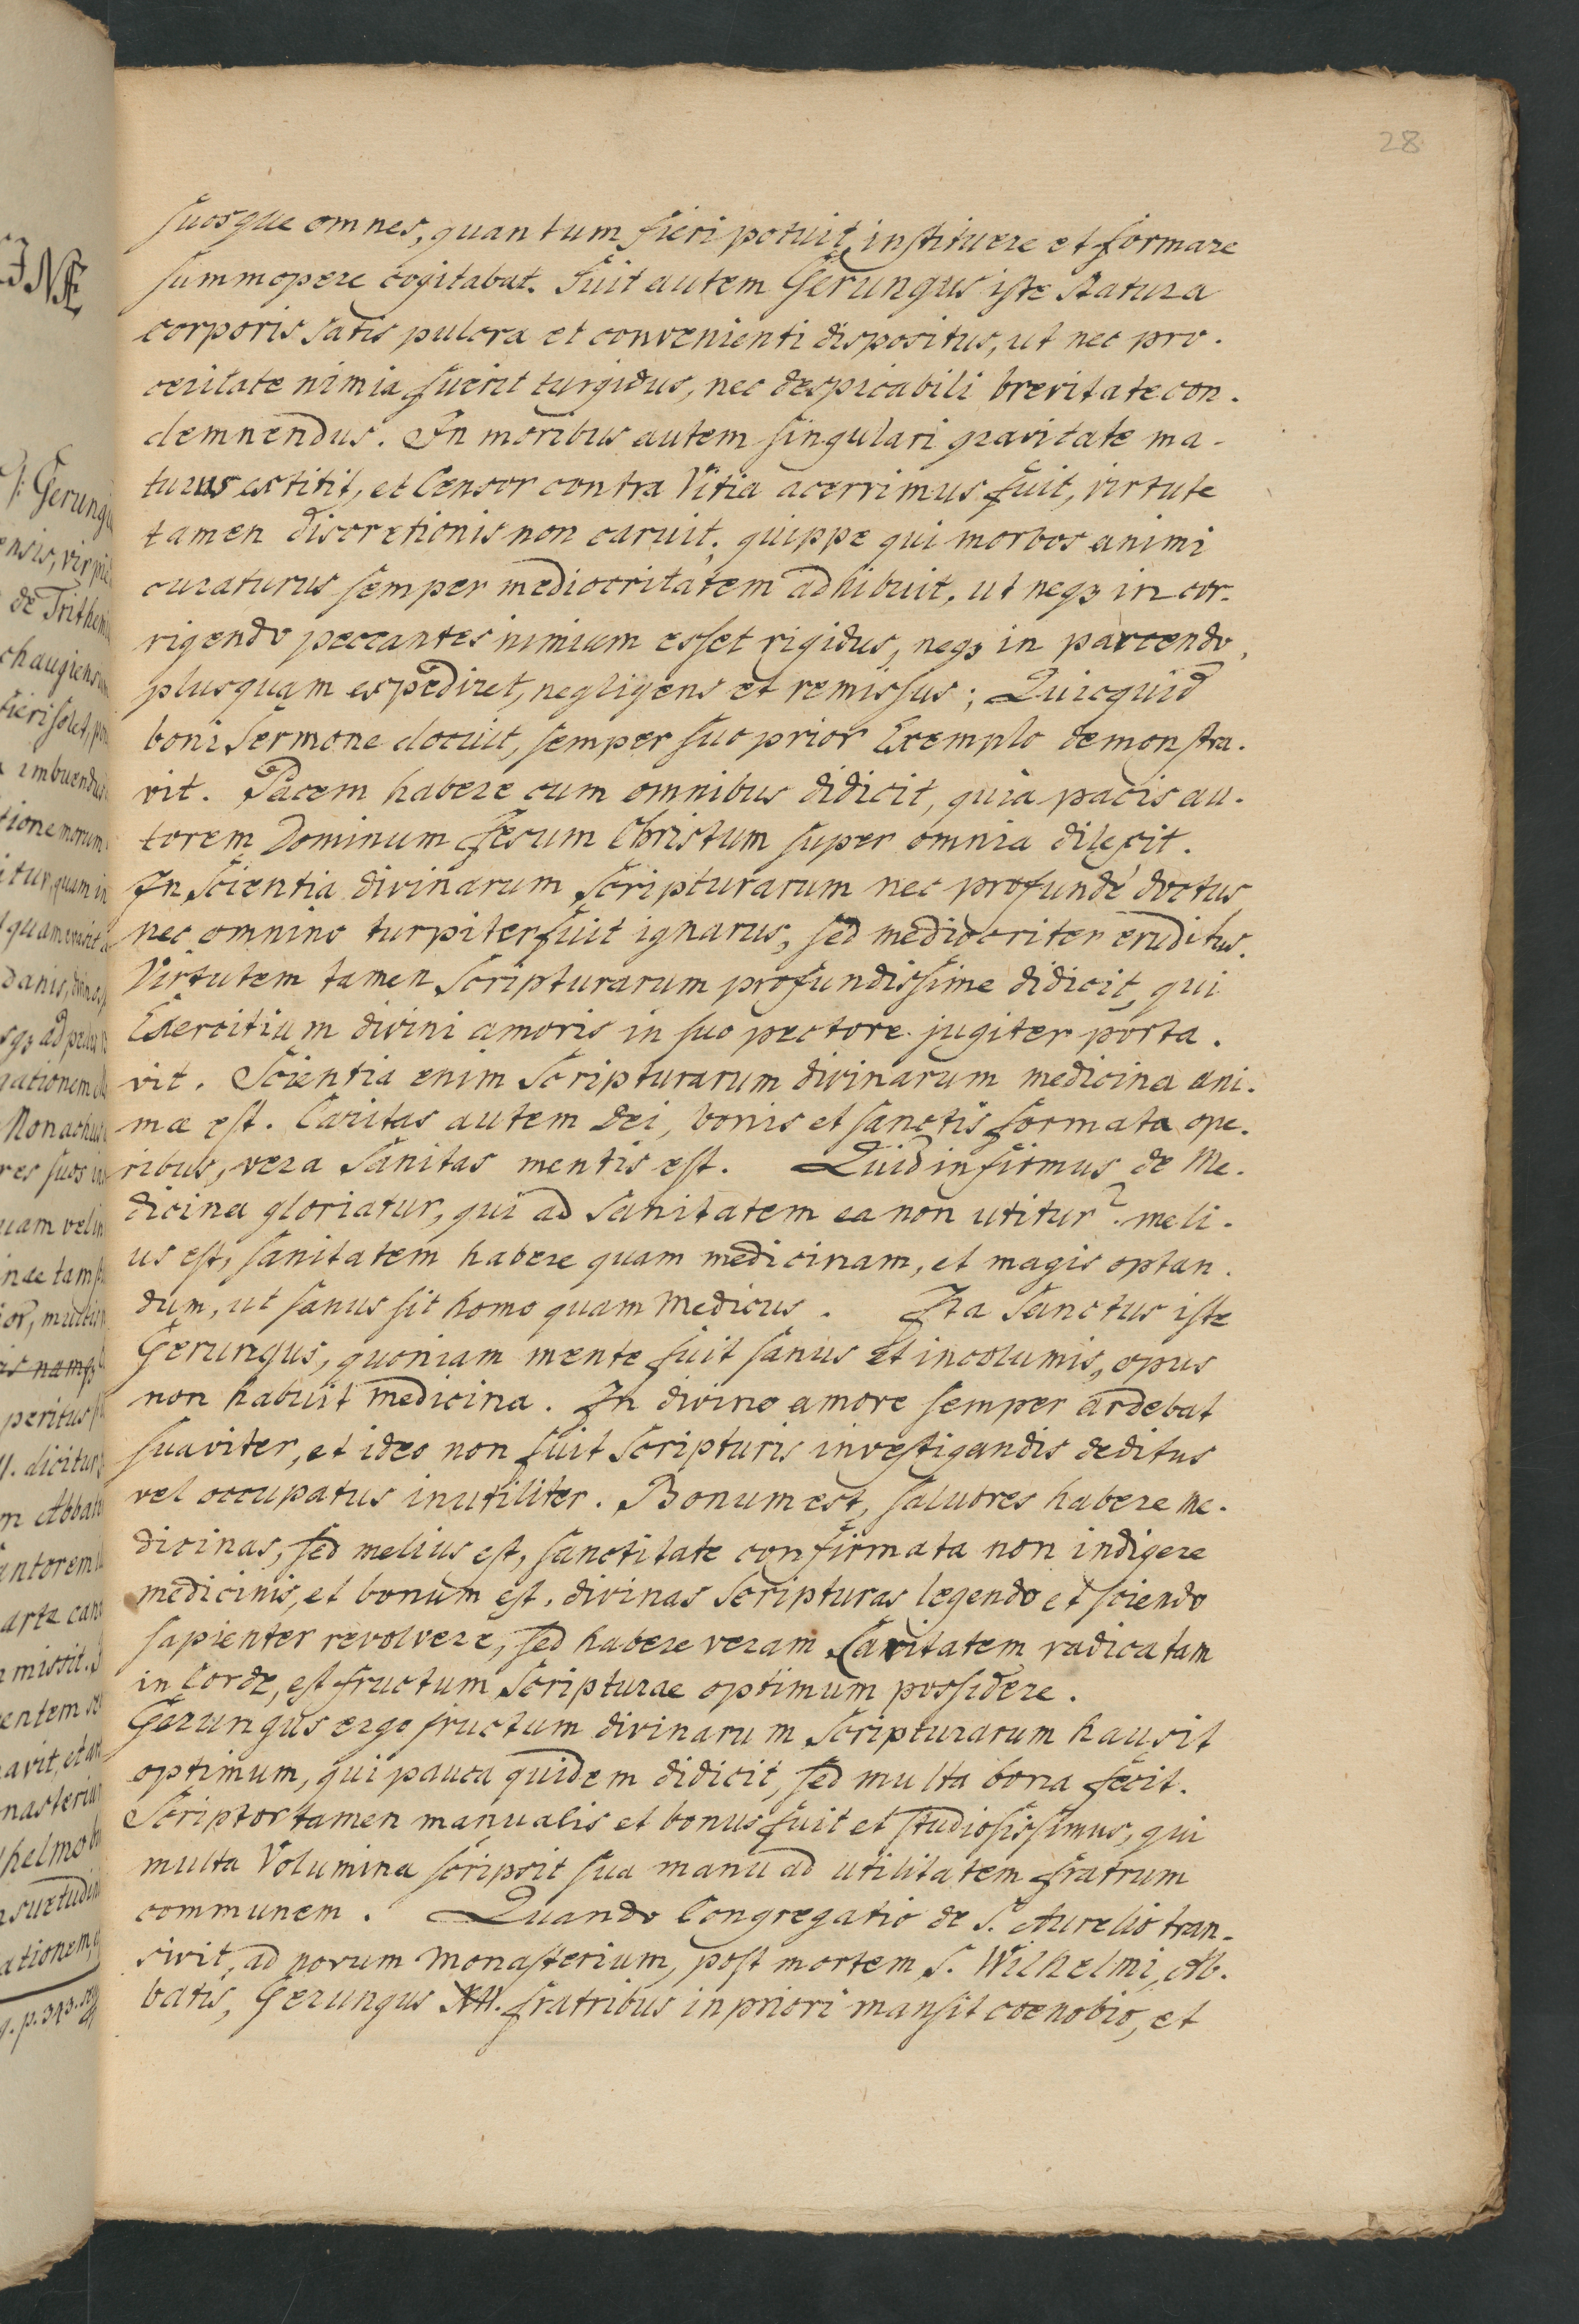 28
suosque omnes, quantum fieri potuit, instituere et formare
summopere cogitabat. Fuit autem Gerungus iste Statura
corporis satis pulcra et convenienti dispositus, ut nec pro.
ceritate nimia fuerit turgidus, nec despicabili brevitate con.
demnendus. In moribus autem singulari gravitate ma.
turus extitit, et Censor contra Vitia acerrimus fuit, virtute
tamen discretionis non caruit; quippe qui morbos animi
curaturus semper mediocritatem adhibuit, ut neqȝ in cor.
rigendo peccantes nimium esset rigidus, neqȝ in parcendo,
plusquam expediret, negligens et remissus; Quicquid
boni Sermone docuit, semper suo prior Exemplo demonstra.
vit. Pacem habere cum omnibus didicit, quia pacis au.
torem Dominum Jesum Christum super omnia dilexit.
In Scientia divinarum Scripturarum nec profundé doctus
nec omnino turpiter fuit ignarus, sed mediocriter eruditus.
Virtutem tamen Scripturarum profundissime didicit, qui
Exercitium divini amoris in suo pectore jugiter porta.
vit. Scientia enim Scripturarum divinarum medicina ani.
mæ est. Caritas autem Dei, bonis et sanctis formata ope.
ribus, vera Sanitas mentis est. Quid infirmus de Me.
dicina gloriatur, qui ad Sanitatem ea non utitur? meli.
us est, sanitatem habere quam medicinam, et magis optan.
dum, ut sanus sit homo quam Medicus. Ita Sanctus iste
Gerungus, quoniam mente fuit sanus et incolumis, opus
non habuit Medicina. In divino amore semper ardebat
suaviter, et ideo non fuit Scripturis investigandis deditus
vel occupatus inutiliter. Bonum est, salubres habere Me.
dicinas, sed melius est, sanctitate confirmata non indigere
medicinis, et bonum est, divinas Scripturas legendo et sciendo
sapienter revolvere, sed habere veram Caritatem radicatam
in Corde, est fructum Scripturae optimum possidere.
Gerungus ergo fructum divinarum Scripturarum hausit
optimum, qui pauca quidem didicit, sed multa bona fecit.
Scriptor tamen manualis et bonus fuit et studiosissimus, qui
multa Volumina scripsit sua manu ad utilitatem fratrum
communem. Quando Congregatio de S. Aurelio tran.
sivit, ad novum Monasterium, post mortem S. Wilhelmi, Ab.
batis, Gerungus XII. fratribus in priori mansit coenobio, et